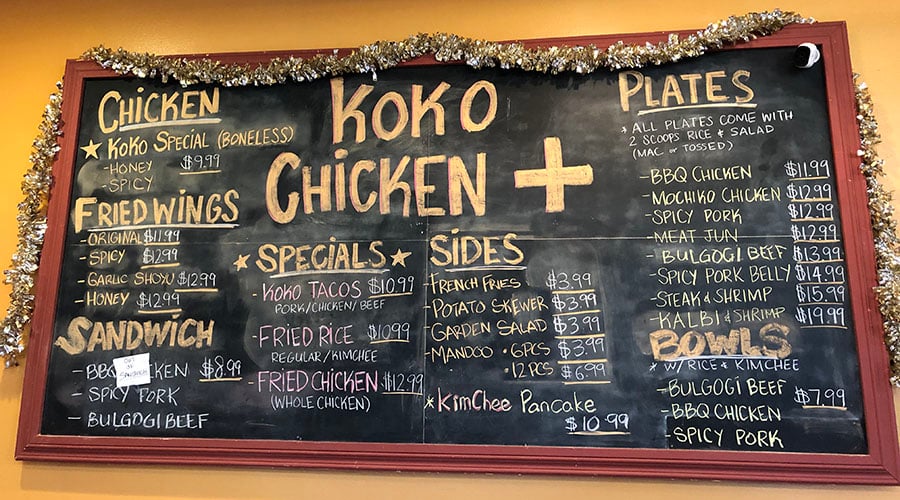 KOKO
CHICKEN +
CHICKEN
KOKO SPECIAL (BONELESS)
- HONEY $9.99
- SPICY
FRIED WINGS
- ORIGINAL $11.99
- SPICY $12.99
- GARLIC SHOYU $12.99
- HONEY $12.99
SANDWICH
- BBQ CHICKEN $8.99
- SPICY PORK
- BULGOGI BEEF
SPECIALS
- KOKO TACOS $10.99
PORK/CHICKEN/BEEF
- FRIED RICE $10.99
REGULAR/KIMCHEE
- FRIED CHICKEN $12.99
(WHOLE CHICKEN)
SIDES
- FRENCH FRIES $3.99
- POTATO SKEWER $3.99
- GARDEN SALAD $3.99
- MANDOO • 6PCS $3.99
• 12PCS $6.99
* KIMCHEE PANCAKE
$10.99
PLATES
* ALL PLATES COME WITH
2 SCOOPS RICE & SALAD
(MAC OR TOSSED)
- BBQ CHICKEN $11.99
- MOCHIKO CHICKEN $12.99
- SPICY PORK $12.99
- MEAT JUN $12.99
- BULGOGI BEEF $13.99
- SPICY PORK BELLY $14.99
- STEAK & SHRIMP $15.99
- KALBI & SHRIMP $19.99
BOWLS
* W/ RICE & KIMCHEE
- BULGOGI BEEF
- BBQ CHICKEN $7.99
- SPICY PORK